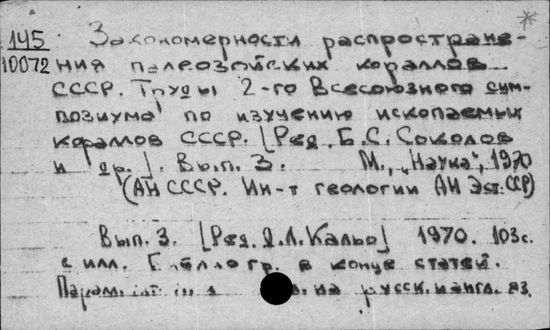 145
10072
Закономерности распростране-
ния палеозойских кораллов
СССР. Труды 2-го Всесоюзного сим-
позиума по изучению ископаемых
кораллов СССР. [Ред. Б.С. Соколов
и др.]. Вып. 3. М., „Наука", 1970
(АН СССР. Ин-т геологии АН Эст.ССР)
Вып. 3. [Ред. Д.Л. Кальо] 1970. 103с.
с илл. Библиогр. в конце статей.
Парал. на русск. и англ. яз.